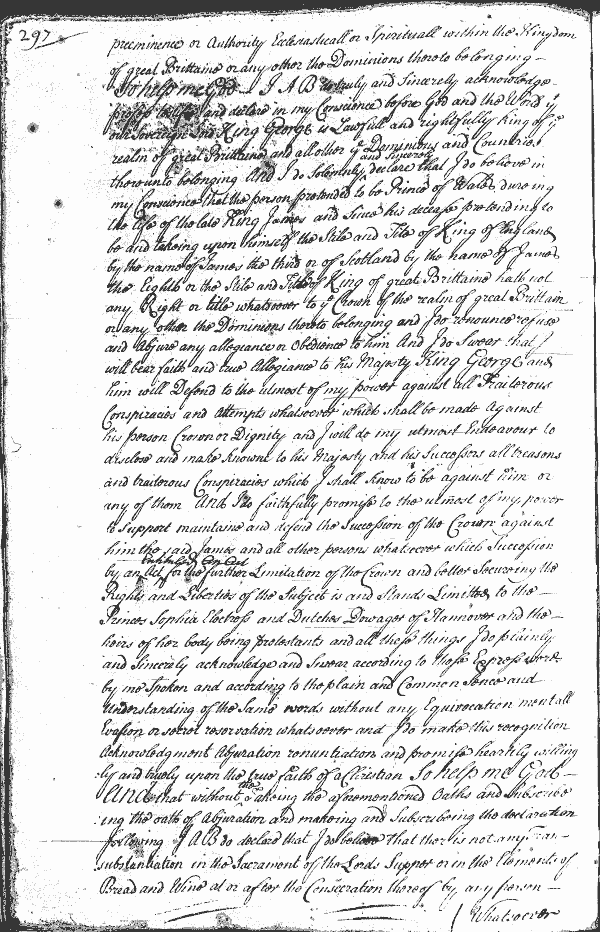 297
preeminence or Authority Ecclesasticall or Spirituall within the Kingdom
of great Brittaine or any other the Dominions thereto belonging -
So help me God - I A B do truly and Sincerely acknowledge
profess testify and declare in my Conscience before God and the World yt
our Sovereign Lord King George is Lawfull and rightfully King of ye
realm of great Brittaine and all other ye Dominions and Countries
and Sincerely
thereunto belonging And I do Solemnly declare that I do believe in
my Conscience that the person pretended to be Prince of Wales dureing
the life of the late King James and Since his decease pretending to
be and takeing upon himself the Stile and Title of King of England
by the name of James the third or of Scotland by the name of James
the Eighth or the Stile and Title of King of great Brittaine hath not
any Right or title whatsoever to ye Crown of the realm of great Brittain
or any other the Dominions thereto belonging and I do renounce refuse
and Abjure any allegiance or Obedience to him And I do Swear that I
will bear faith and true Allegiance to his Majesty King George and
him will Defend to the utmost of my power against all Traiterous
Conspiracies and Attempts whatsoever which shall be made Against
his person Crown or Dignity and I will do my utmost Endeavour to
disclose and make Knowne to his Majesty and his Successors all treasons
and traiterous Conspiracies which I shall Know to be against him or
any of them And I do faithfully promise to the utmost of my power
to Support maintaine and defend the Succession of the Crown against
him the said James and all other persons whatsoever which Succession
Entituled An Act
by an Act for the further Limitation of the Crown and better Secureing the
Rights and Liberties of the Subject is and Stands Limitted to the -
Princes Sophia Electress and Dutches Dowager of Hannover and the -
heirs of her body being protestants and all these things I do plainly
and Sincerely acknowledge and Swear according to those Express words
by me Spoken and according to the plain and Common Sence and
understanding of the Same words without any Equivocation mentall
Evasion or secret reservation whatsoever and I do make this recognition
Acknowledgment Abjuration renuntiation and promise heartily willing
ly and truely upon the true faith of a Christian So help me God -
the
And that without takeing the aforementioned Oaths and Subscribe
ing the oath of Abjuration and makeing and Subscribeing the declaration
following I A B do declare that I do believe that there is not any Tran
substantiation in the Sacrament of the Lords Supper or in the Elements of
Bread and Wine at or after the Consecration thereof by any person -
Whatsoever